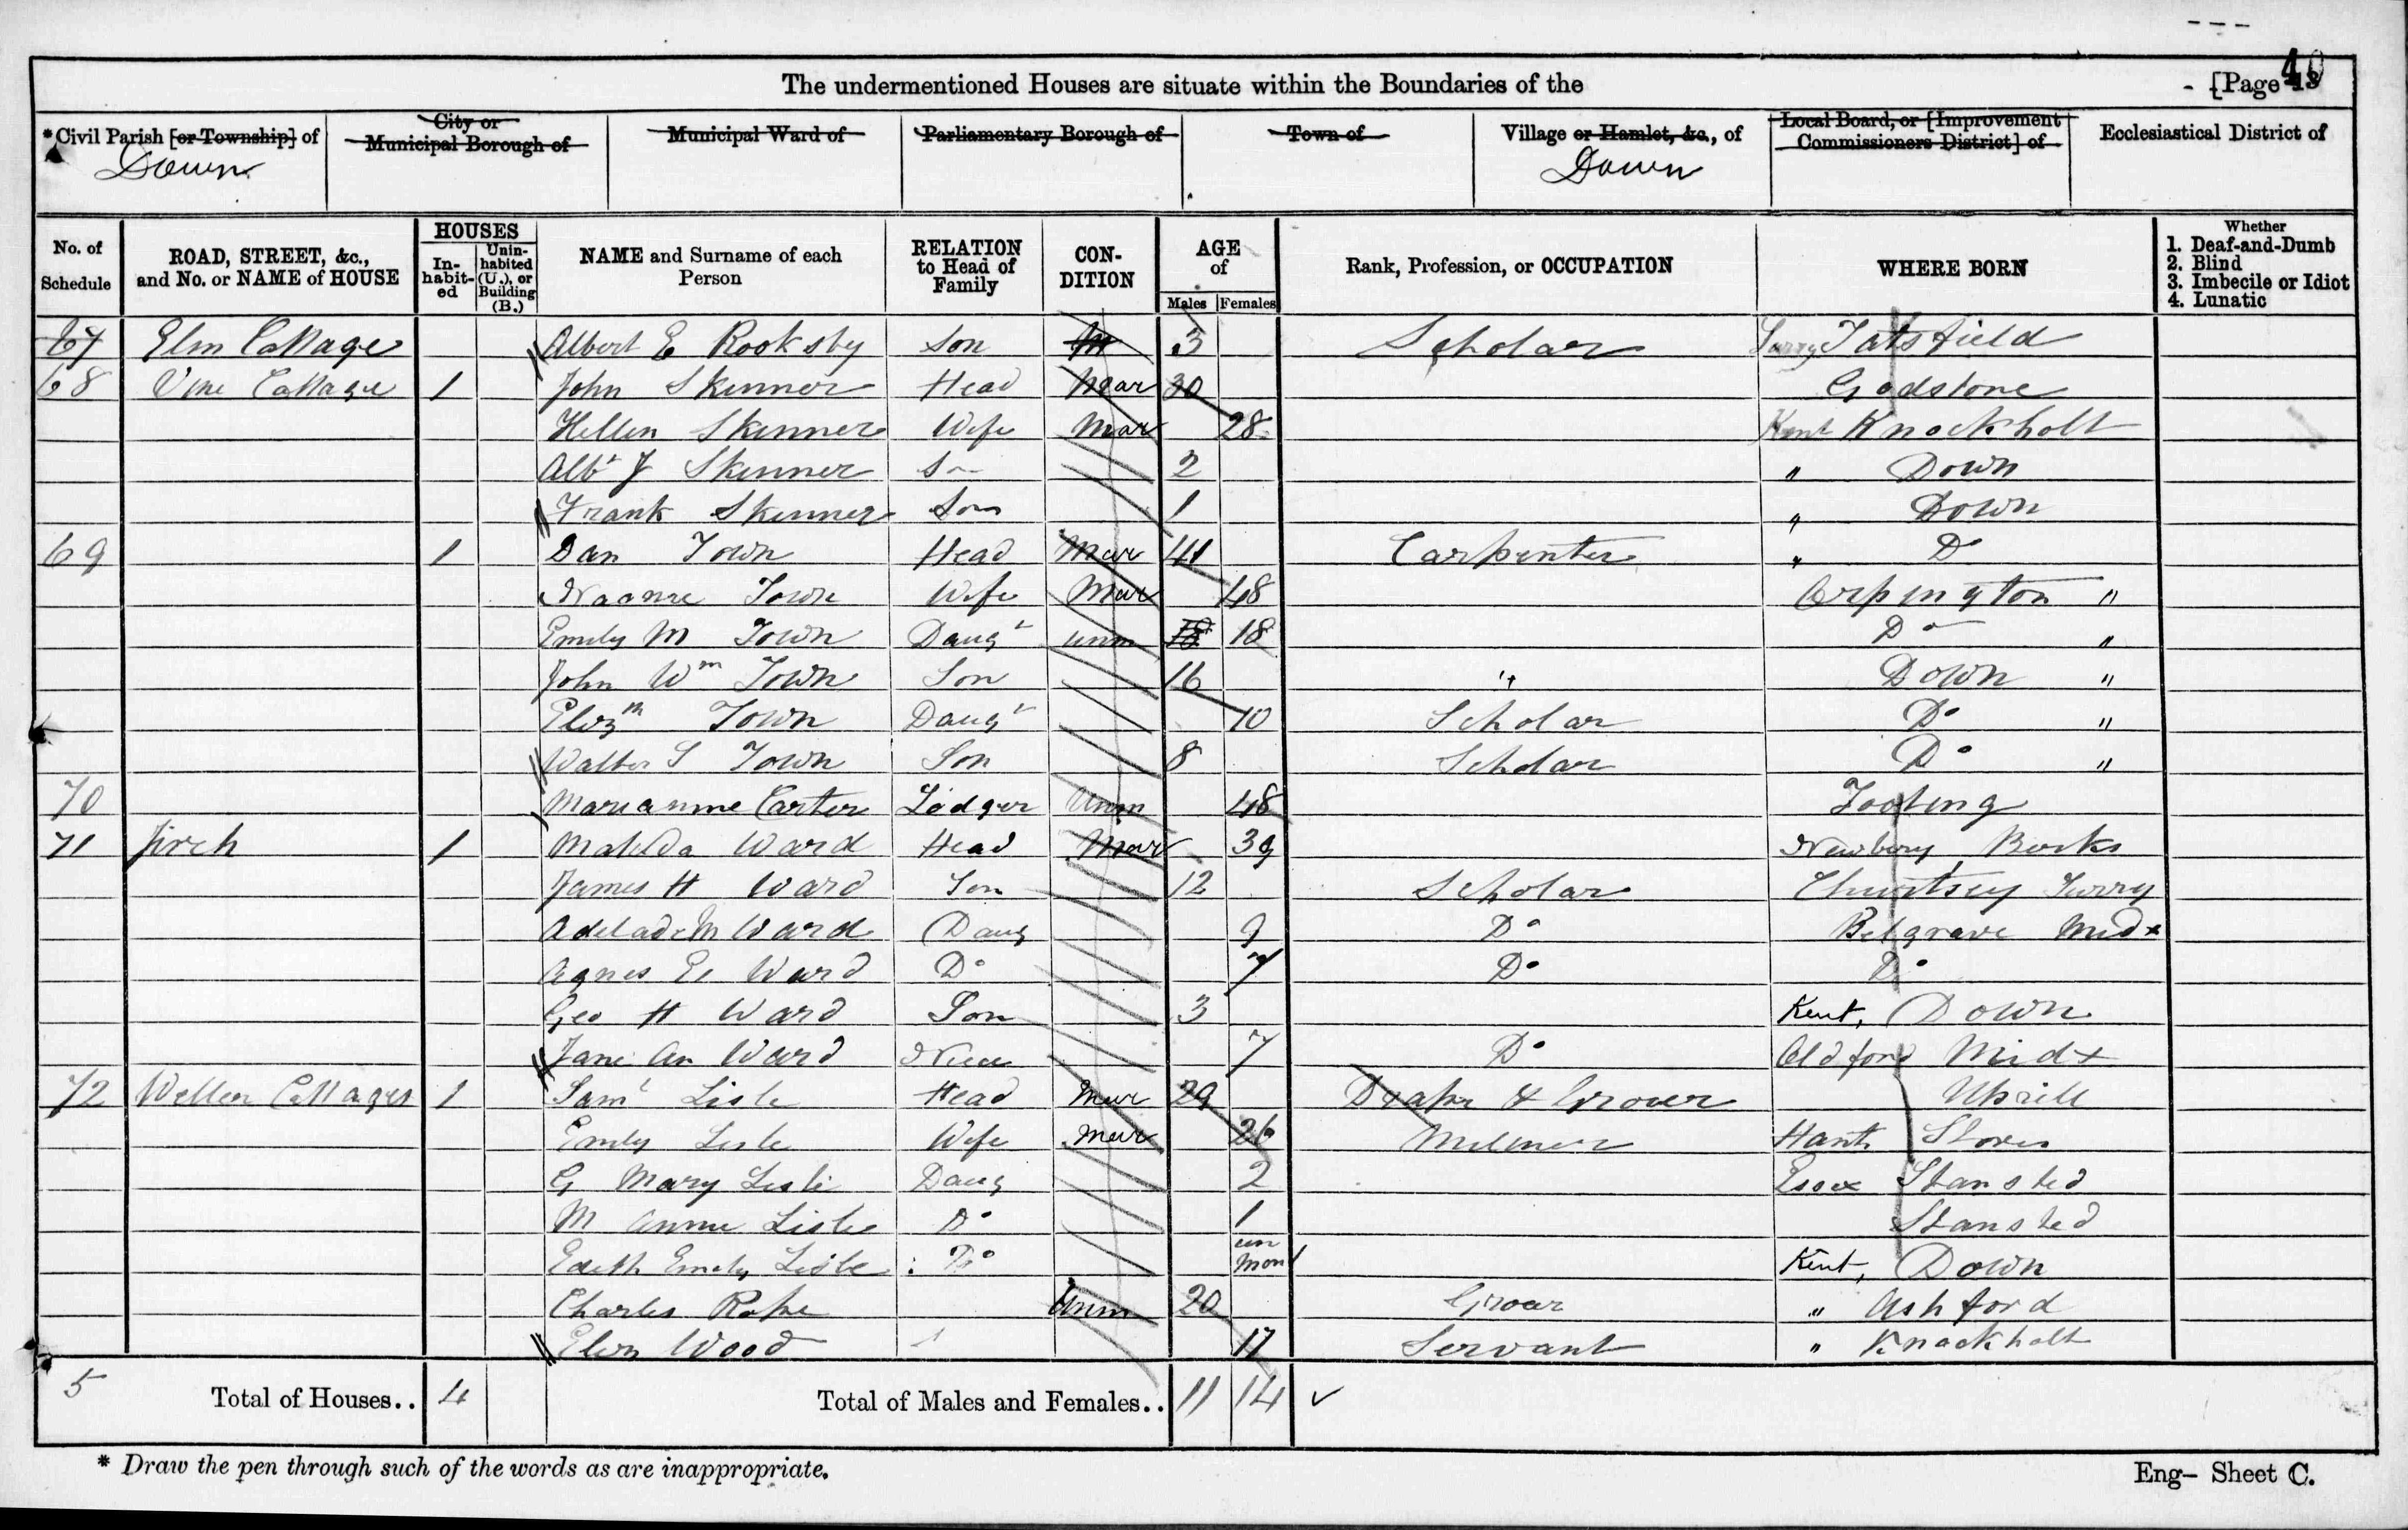 The undermentioned Houses are situate within the Boundaries of the [Page 40
*Civil Parish [or Township] of City or Municipal Borough of Municipal Ward of Parliamentary Borough of Town of Village or Hamlet, &c., of Local Board, or [Improvement Commissioners District] of Ecclesiastical District of
Down Down
No. of Schedule ROAD, STREET, &c., and No. or NAME of HOUSE HOUSES In-habit-ed Unin-habited (U.), or Building (B.) NAME and Surname of each Person RELATION to Head of Family CON-DITION AGE of Males Females Rank, Profession, or OCCUPATION WHERE BORN Whether 1. Deaf-and-Dumb 2. Blind 3. Imbecile or Idiot 4. Lunatic
67 Elm Cottage Albert E Rooksby Son 3 Scholar Surry Tatsfield
68 Vine Cottage 1 John Skinner Head Mar 30 Godstone
Hellen Skinner Wife Mar 28 Kent Knockholt
Albt J Skinner Son 2 " Down
Frank Skinner Son 1 " Down
69 1 Dan Town Head Mar 41 Carpenter " Do
Town Wife Mar 48 Orpington "
Emily M Town Daugr unm 18 18 Do "
John Wm Town Son 16 " Down "
Elizth Town Daugr 10 Scholar Do "
Walter S Town Son 8 Scholar Do "
70 Marianne Carter Lodger Unm 48 Tooting
71 1 Matilda Ward Head Mar 39 Newbery Berks
James H Ward Son 12 Scholar Chertsey Surry
Adelade M Ward Daug 9 Do Belgrave Midx
Agnes E Ward Do 7 Do Do
Geo H Ward Son 3 Kent, Down
Jane An Ward Niece 7 Do Oldford Midx
72 Cottages 1 Saml Lisle Head Mar 29 Draper & Grocer
Emily Lisle Wife Mar 26 Milliner Hants
G Mary Lisle Daug 2 Essex Stansted
M Annie Lisle Do 1 Stansted
Edith Emely Lisle Do un Mon Kent, Down
Charles Rope Unm 20 Grocer " Ashford
Eliza Wood 17 Servant " Knockholt
5 Total of Houses.. 4 Total of Males and Females.. 11 14
* Draw the pen through such of the words as are inappropriate.
Eng- Sheet C.